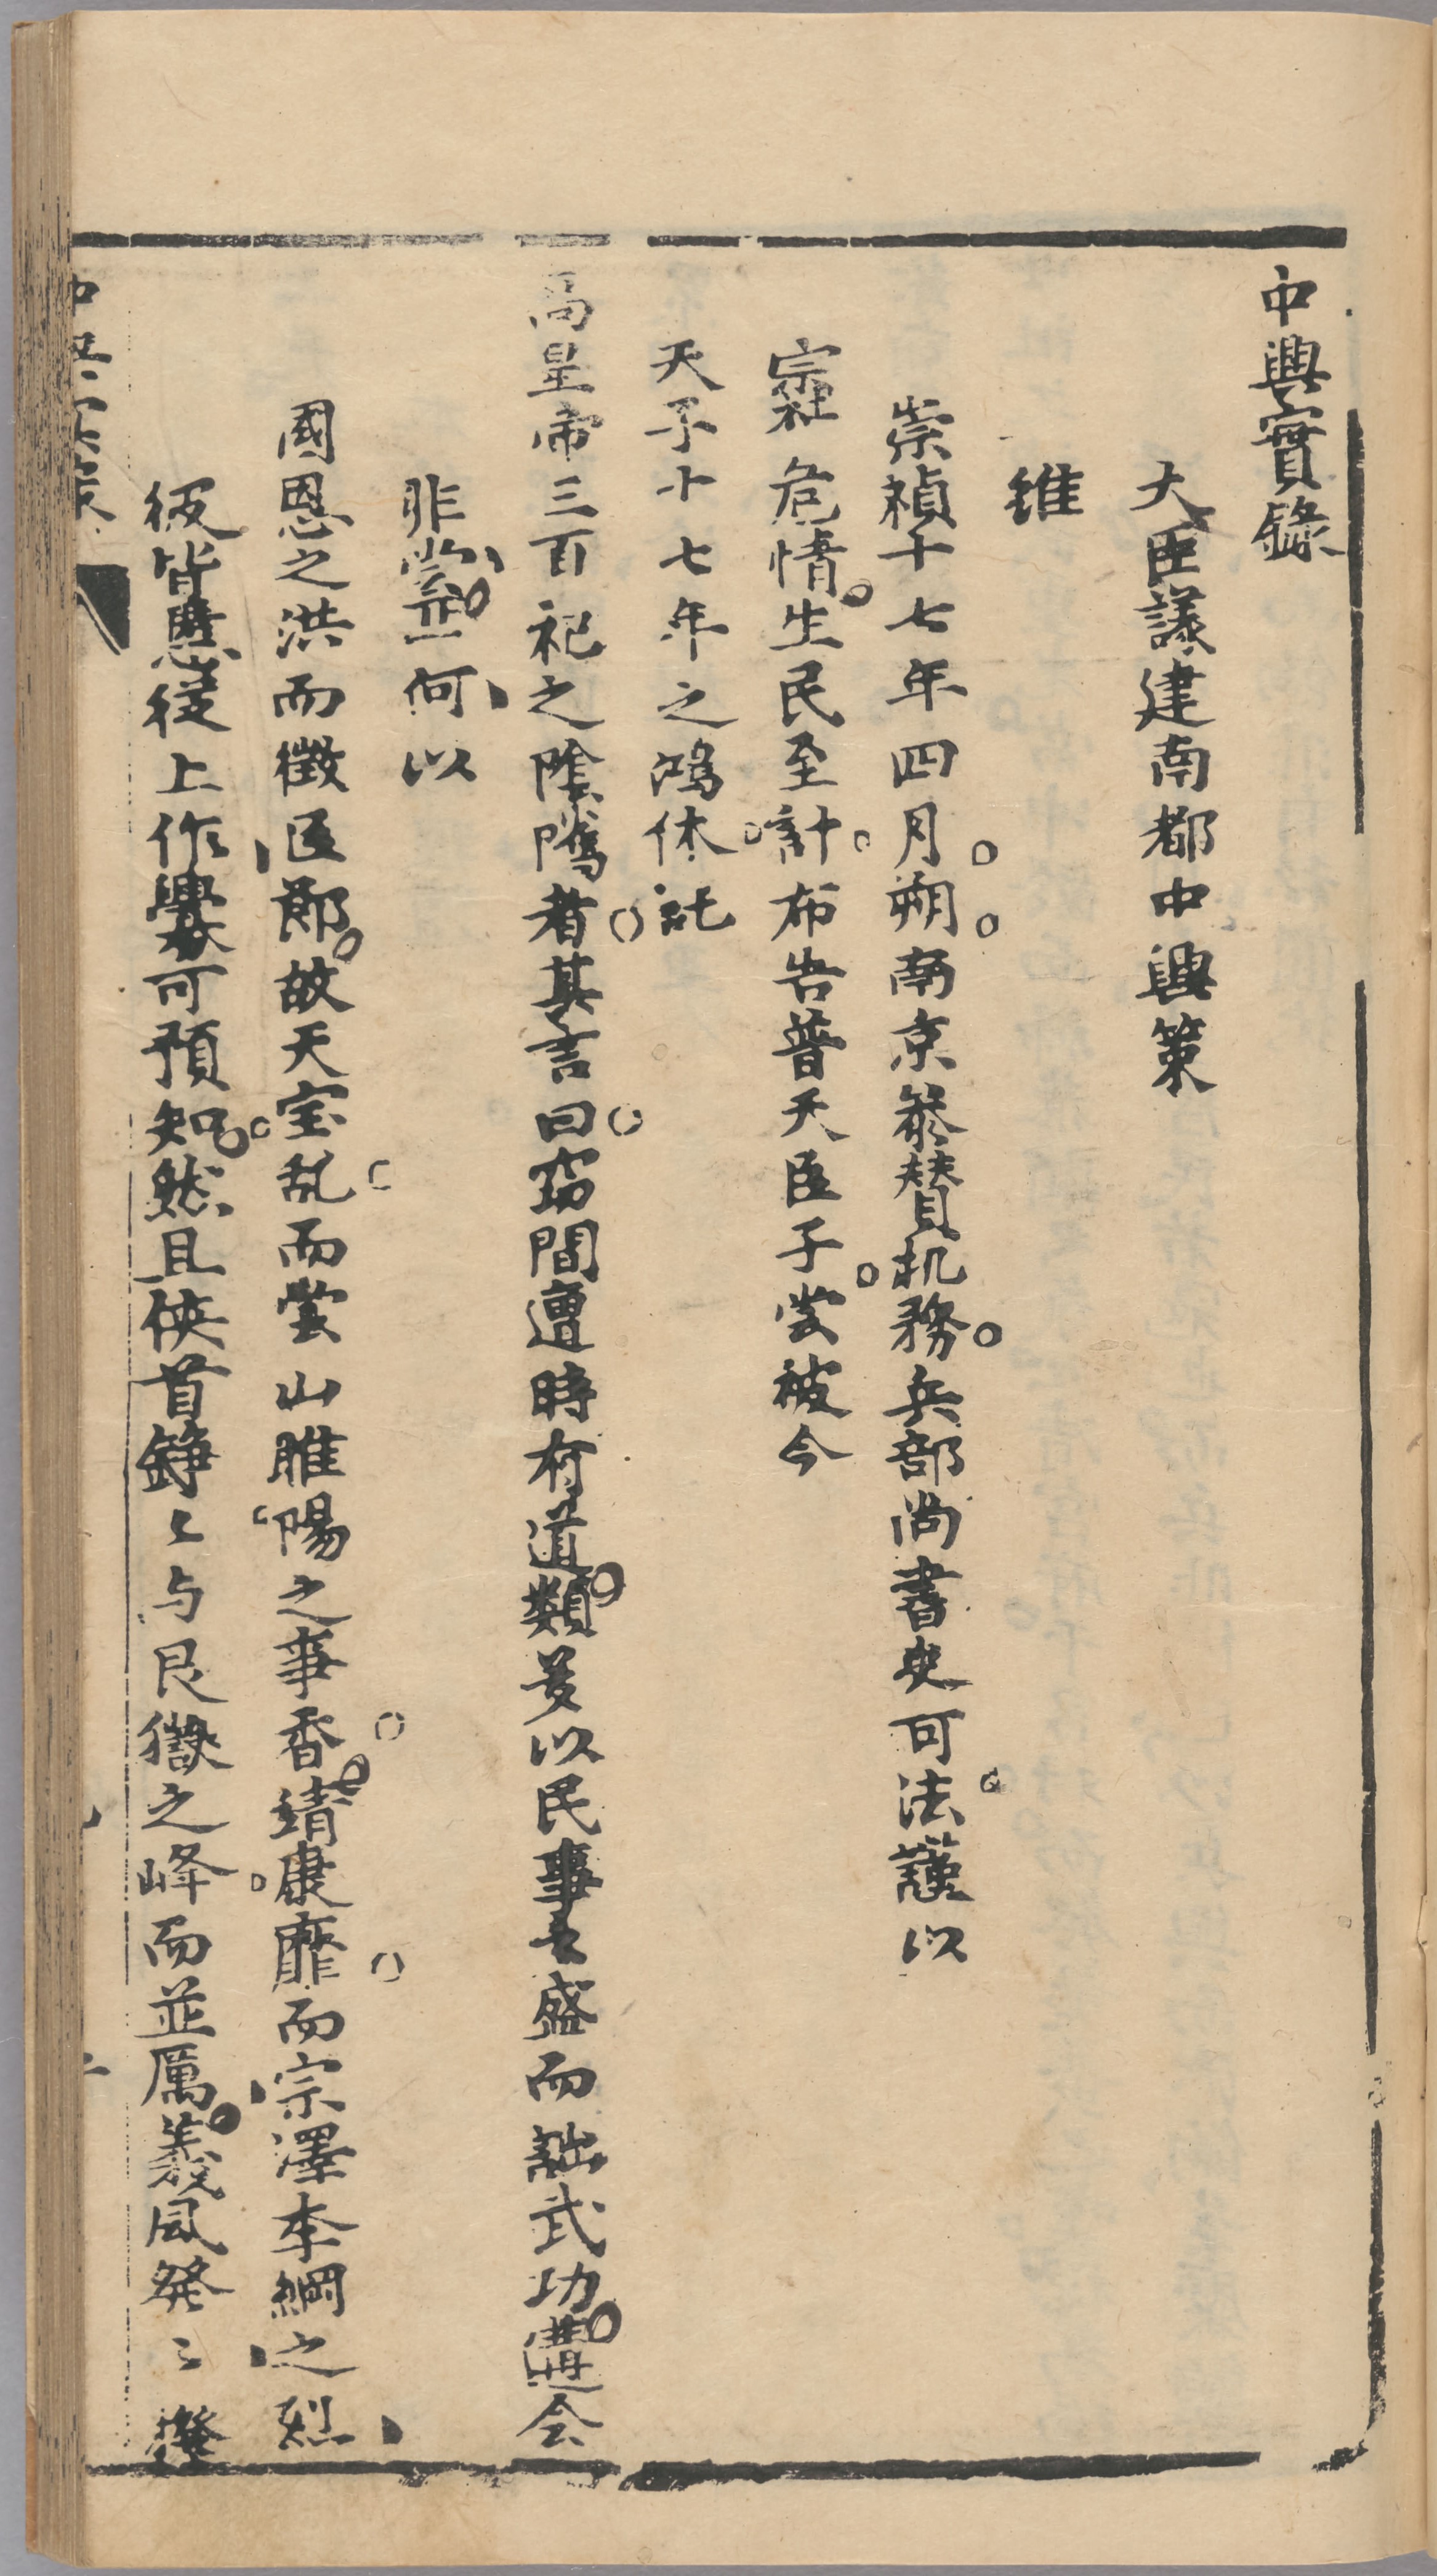 中興實錄
大臣議建南都中興策
維
崇禎十七年四月朔南京叅賛机務兵部尚書史可法謹以
宗社危情生民至計布告普天臣子嘗被今
天子十七年之鴻休託
高皇帝三百祀之陰隲者其言曰窃聞遭時有道類多以民事之盛而詘武功遭会
非常正何以
國恩之洪而徵臣節故天宝乱而常山睢陽之事香靖康靡而宗澤李綱之烈
彼皆愚從上作釁可預知然且俠首錚〻与艮嶽之峰而並厲義风癹〻
中兴实录